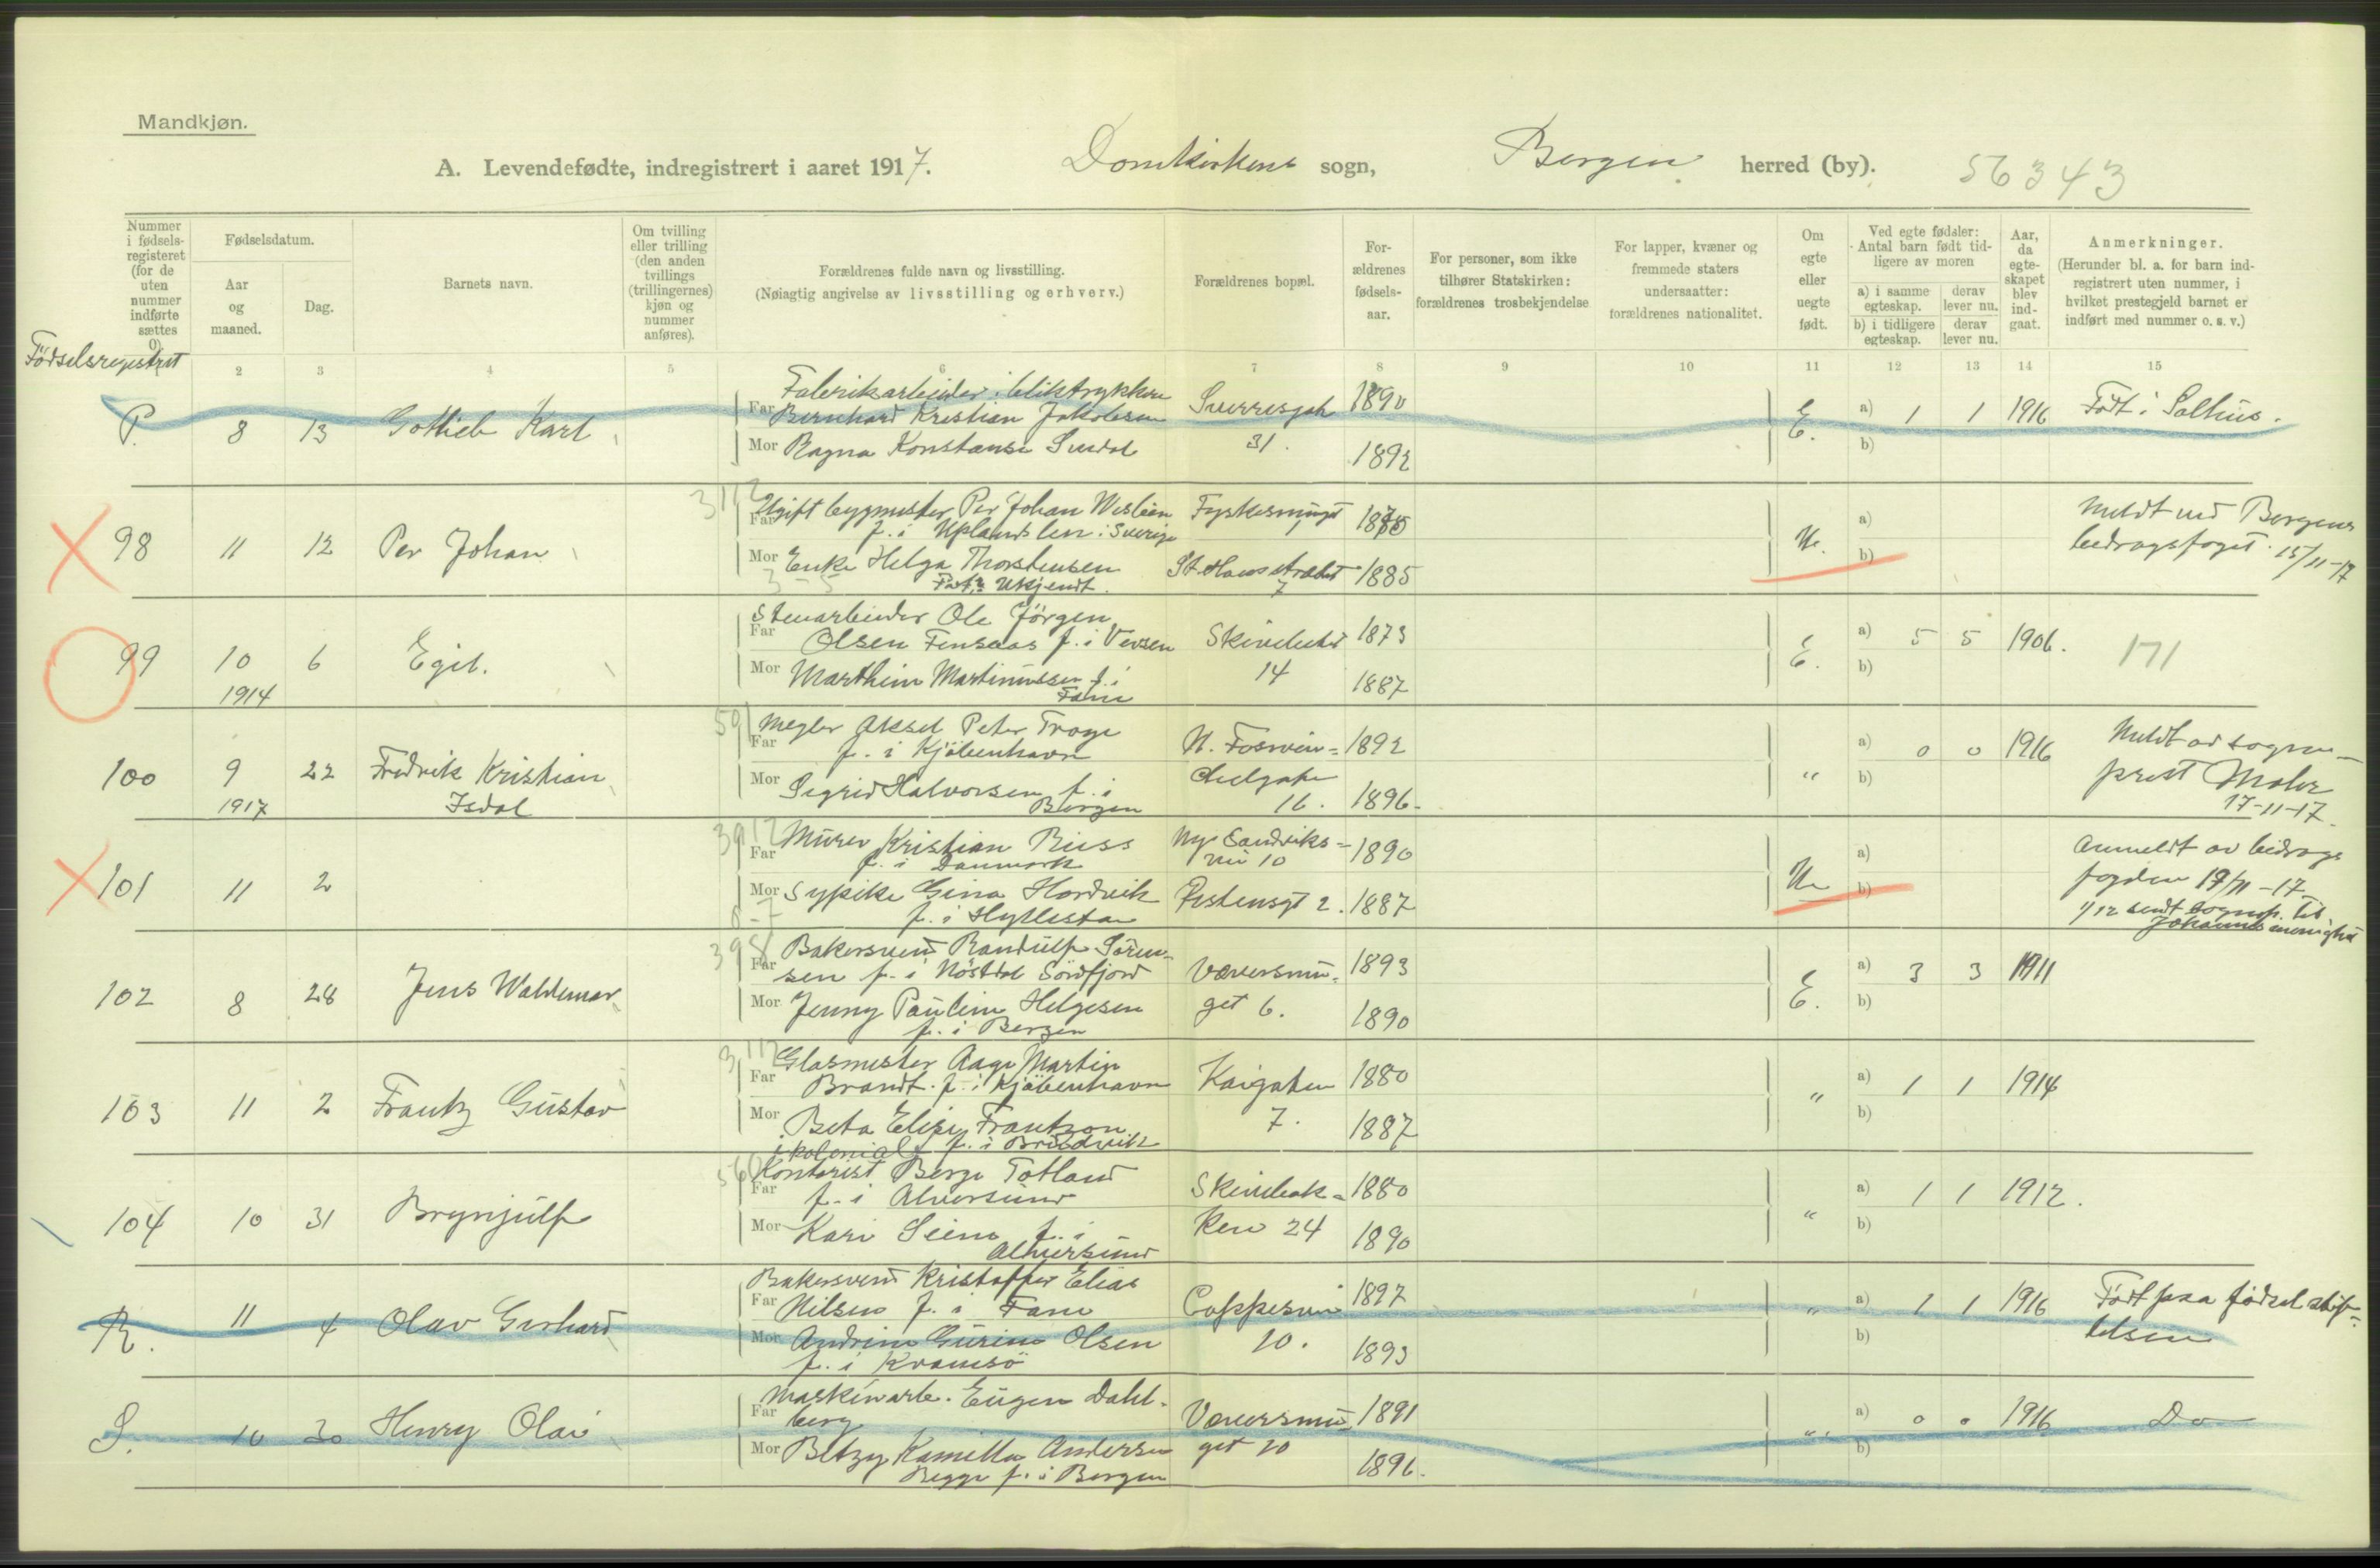 Mandkjøn.
A. Levendefødte, indregistrert i aaret 1917. Domkirkens sogn, Bergen herred (by). 56343
Nummer i fødsels-registeret (for de uten nummer indførte sættes 0).
Fødselsdatum.
Aar og maaned.
Dag.
Barnets navn.
Om tvilling eller trilling (den anden tvillings (trillingernes) kjøn og nummer anføres).
Forældrenes fulde navn og livsstilling.
(Nøiagtig angivelse av livsstilling og erhverv.)
Forældrenes bopæl.
For-ældrenes fødsels-aar.
For personer, som ikke tilhører Statskirken: forældrenes trosbekjendelse
For lapper, kvæner og fremmede staters undersaatter: forældrenes nationalitet.
Om egte eller uegte født.
Ved egte fødsler: Antal barn født tid-ligere av moren
a) i samme egteskap.
derav lever nu.
b) i tidligere egteskap.
derav lever nu.
Aar, da egte-skapet blev ind-gaat.
Anmerkninger.
(Herunder bl. a. for barn ind-registrert uten nummer, i hvilket prestegjeld barnet er indført med nummer o. s. v.)
Födselsregistret
2 3 4 5 6 7 8 9 10 11 12 13 14 15
Fabrikarbeider i bliktrykkeri
P. 8 13 Gottlieb Karl Far Bernhard Kristian Jakobsen Sverresgate 1890 E. a) 1 1 1916 Født i Salhus.
Mor Ragna Konstanse Susdal 31. 1892 b)
98 11 12 Per Johan
Far Ugift bygmester Per Johan Weslien Fyskesmuget 1
f. i Uplands len i Sverige
Mor Enke Helga Thorstensen St. Hansstrædet 7 1885
Født: Ukjendt.
U. a) b)
Meldt ved Bergens bidragsfoget 15/11-17
99 10 6 Egil.
1914
Stenarbeider Ole Jörgen
Far Olsen Finsaas f. i Vevsen Skivebakk 1873
Mor Marthine Martinussen f. i Fane 14 1887
E. a) 5 5 1906. b)
171
100 9 22 Fredrik Kristian
1917 Isdal
Far Megler Aksel Peter Troye
f. i Kjöbenhavn N. Fosswin= 1892
Mor Sigrid Halvorsen f. i Bergen ckelgate 16. 1896.
" a) 0 0 1916 b)
Meldt av sogne-
prest Mohr
17-11-17.
101 11 2
Far Murer Kristian Riess Ny Sandviks= 1890
f. i Danmark vei 10
Mor Sypike Gina Hordvik Øistensgt 2. 1887
f. i Hyllestad
U. a) b)
Anmeldt av bidrags
fogden 17/11-17
1/12 sendt sognep. til
Johannes menighet
102 8 28 Jens Waldemar
Far Bakersvend Randulf Sören-
sen f. i Nöstdal Söndfjord Væversmu= 1893
Mor Jenny Pauline Helgesen get 6. 1890
f. i Bergen
E. a) 3 3 1911 b)
103 11 2 Frantz Gustav
Far Glasmester Aage Martin
Brandt. f. i Kjöbenhavn Kaigaten 1880
Mor Beta Elise Frantzon 7. 1887
" a) 1 1 1914 b)
i kolonial f. i Brudvik
104 10 31 Brynjulf
Far Kontorist Berge Totland
f. i Alversund Skivebak= 1880
Mor Kari Seim f. i ken 24 1890
Alversund
" a) 1 1 1912. b)
R. 11 4 Olav Gerhard
Bakersvend Kristoffer Elias
Far Nilsen f. i Fane Cappesvei 1897
Mor Andrine Gurine Olsen 10. 1893
f. i Kvamsö
" a) 1 1 1916 b)
Födt paa födselsstif=
telsen
S. 10 30 Henry Olai
Maskinarb. Eugen Dahl-
Far berg Væversmu= 1891
Mor Betzy Kamilla Andersen get 20 1896.
Begge f. i Bergen
" a) 0 0 1916 b) Do